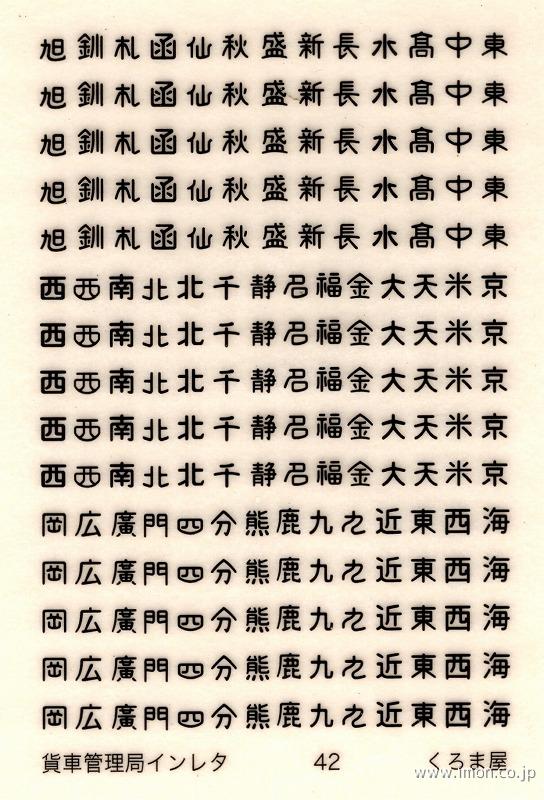 旭 釧 札 函 仙 秋 盛 新 長 水 髙 中 東
旭 釧 札 函 仙 秋 盛 新 長 水 髙 中 東
旭 釧 札 函 仙 秋 盛 新 長 水 髙 中 東
旭 釧 札 函 仙 秋 盛 新 長 水 髙 中 東
旭 釧 札 函 仙 秋 盛 新 長 水 髙 中 東
西 西 南 北 北 千 静 名 福 金 大 天 米 京
西 西 南 北 北 千 静 名 福 金 大 天 米 京
西 西 南 北 北 千 静 名 福 金 大 天 米 京
西 西 南 北 北 千 静 名 福 金 大 天 米 京
西 西 南 北 北 千 静 名 福 金 大 天 米 京
岡 広 廣 門 四 分 熊 鹿 九 九 近 東 西 海
岡 広 廣 門 四 分 熊 鹿 九 九 近 東 西 海
岡 広 廣 門 四 分 熊 鹿 九 九 近 東 西 海
岡 広 廣 門 四 分 熊 鹿 九 九 近 東 西 海
岡 広 廣 門 四 分 熊 鹿 九 九 近 東 西 海
貨車管理局インレタ 42 くろま屋
www.imon.co.jp